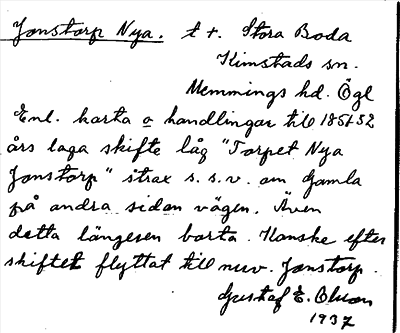 Jonstorp Nya. t. t. Stora Boda
Kimstads sn.
Memmings hd. Ögl
Enl. karta o handlingar till 1851-52
års laga skifte låg "Torpet Nya
Jonstorp" strax s.s.v. om Gamla
på andra sidan vägen. Även
detta längesen borta. Kanske efter
skiftet flyttat till nuv. Jonstorp.
Gustaf E. Olson
1937